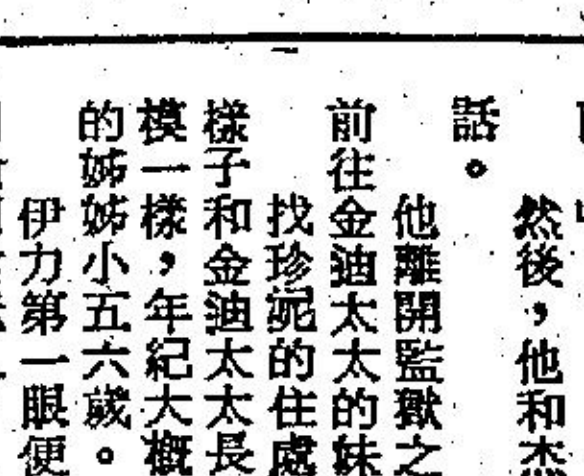 然後，他和
話。
他離開監獄之
前往金迪太太的妹
找珍妮的住處
樣子和金迪太太長
模一樣，年紀大概
的姊姊小五六歲。
伊力第一眼便